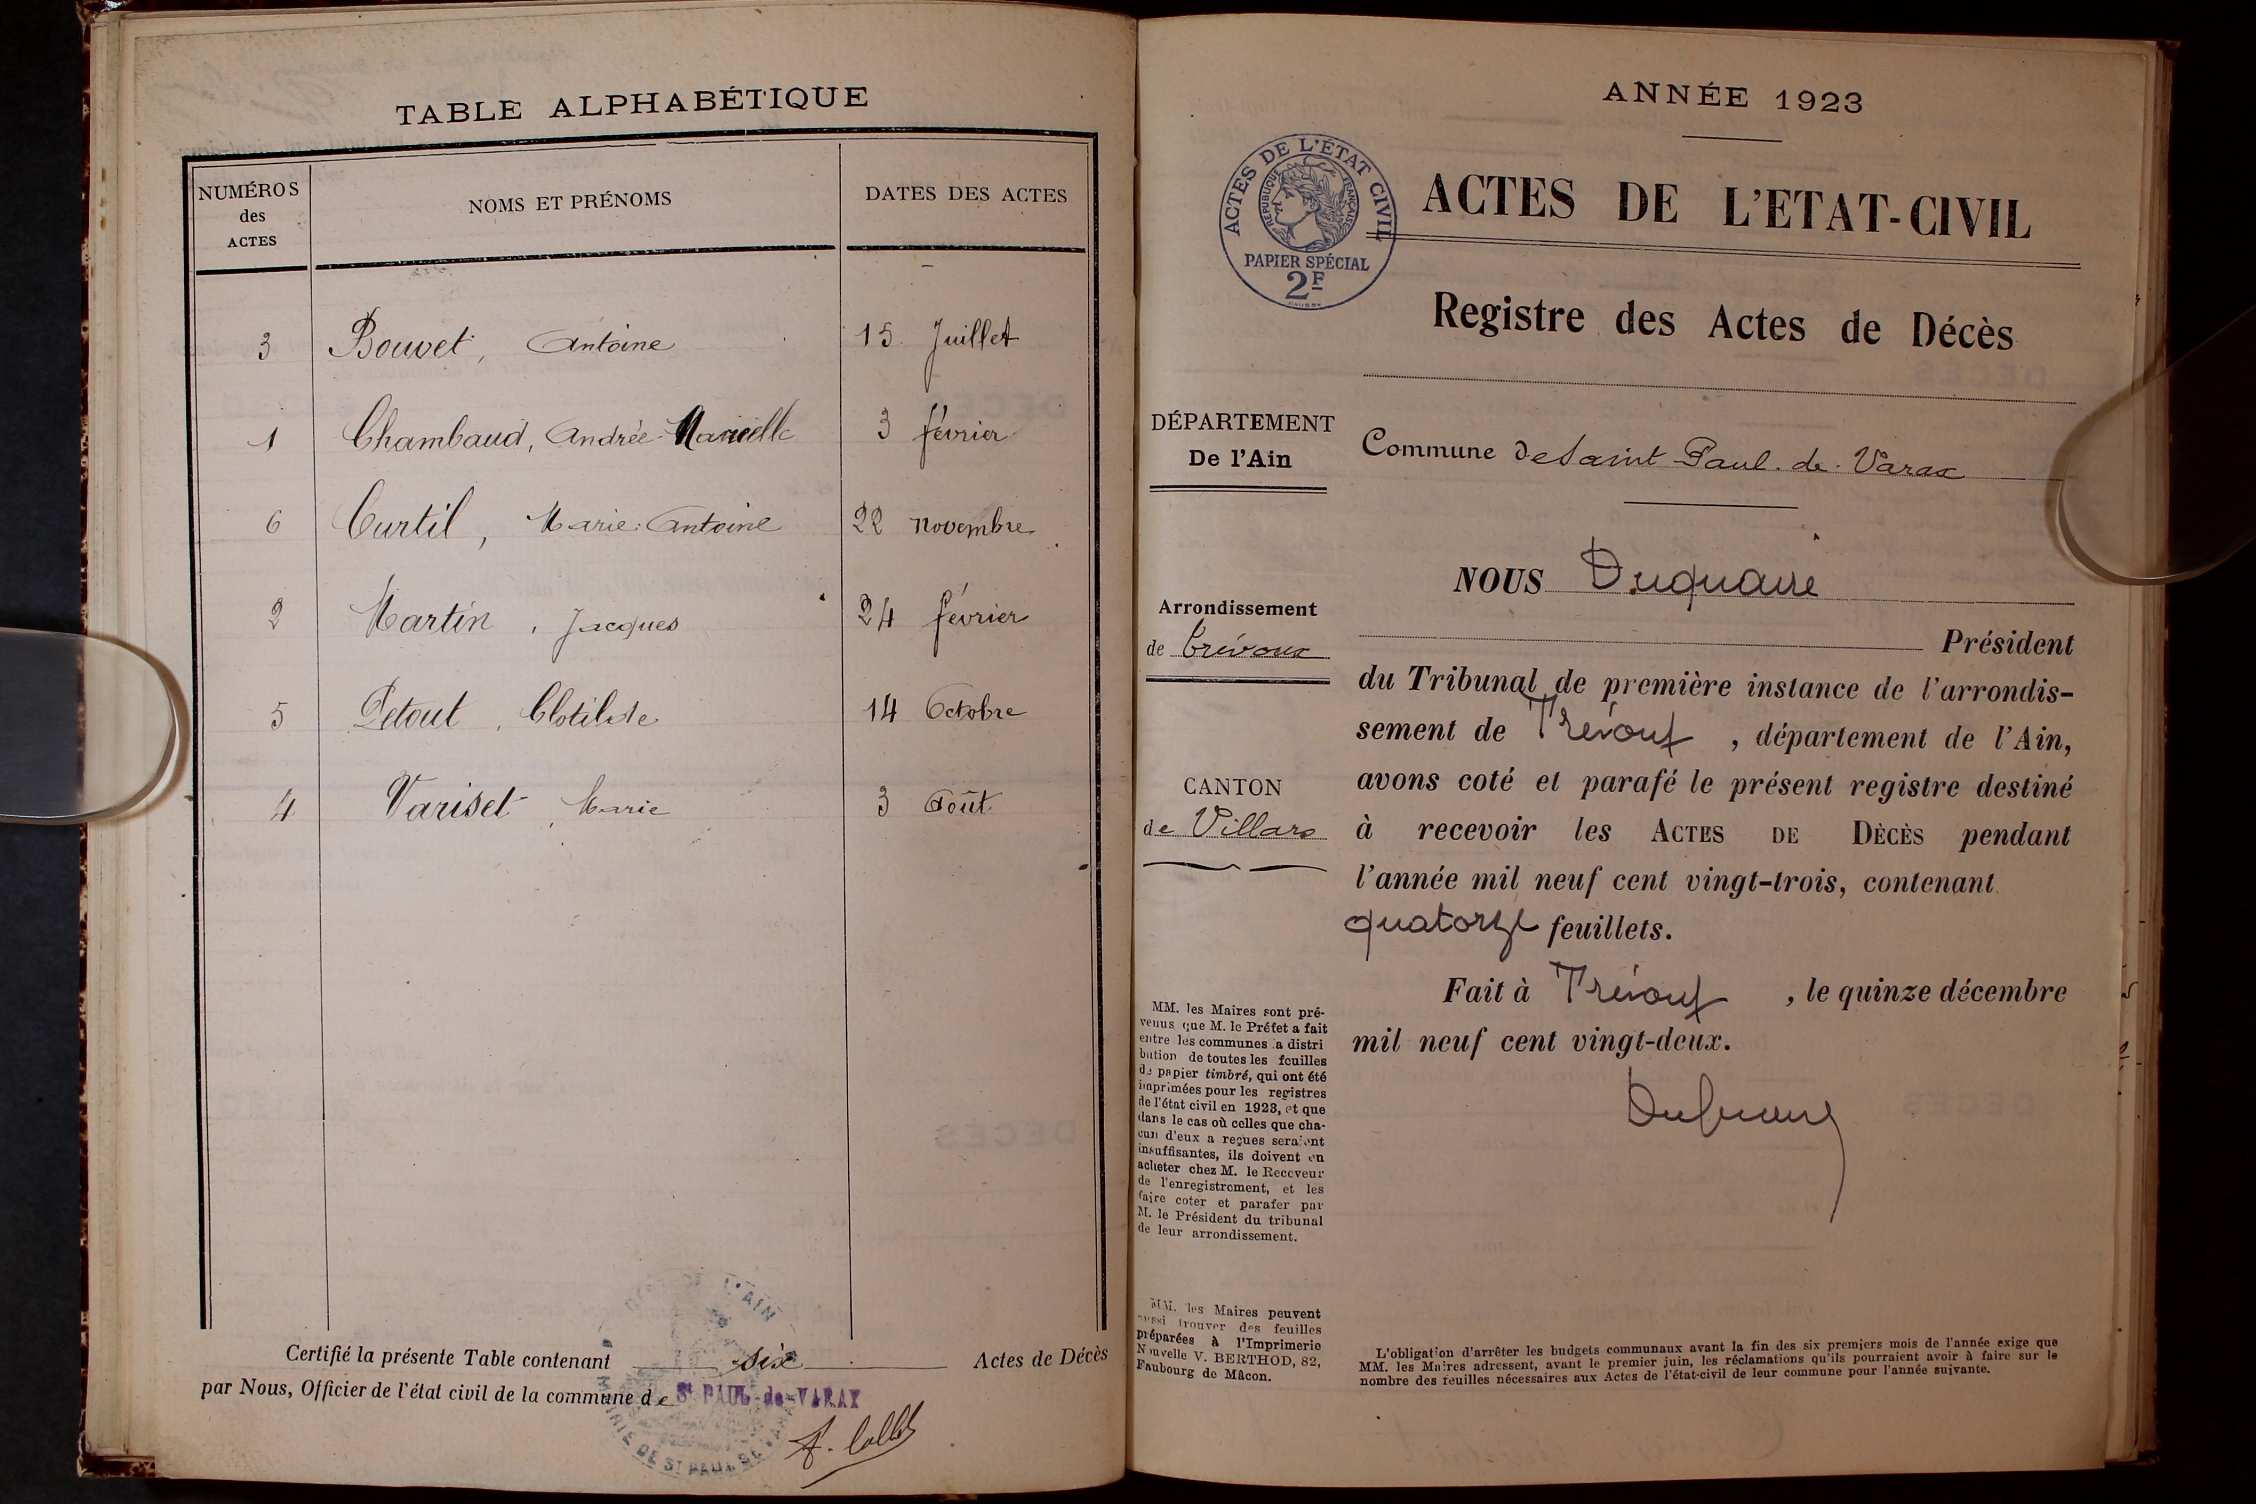 TABLE ALPHABÉTIQUE
NUMÉROS des ACTES
NOMS ET PRÉNOMS
DATES DES ACTES
3 Bouvet, Antoine 15 Juillet
1 Chambaud, Andrée Marcelle 3 février
6 Curtil, Marie-Antoine 22 novembre
2 Martin, Jacques 24 février
5 Petout, Clotilde 14 Octobre
4 Variset, Marie 3 Août
Certifié la présente Table contenant six Actes de Décès
par Nous, Officier de l'état civil de la commune de St PAUL-de-VARAX
MAIRIE DE ST PAUL DE VARAX
ANNÉE 1923
ACTES DE L'ÉTAT CIVIL
RÉPUBLIQUE FRANÇAISE
PAPIER SPÉCIAL
2F
ACTES DE L'ETAT-CIVIL
Registre des Actes de Décès
DÉPARTEMENT
De l'Ain
Commune de Saint-Paul-de-Varax
Arrondissement
de Trévoux
CANTON
de Villars
NOUS Duquaire
Président
du Tribunal de première instance de l'arrondis-
sement de Trévoux, département de l'Ain,
avons coté et parafé le présent registre destiné
à recevoir les ACTES DE DÈCÈS pendant
l'année mil neuf cent vingt-trois, contenant
quatorze feuillets.
Fait à Trévoux, le quinze décembre
mil neuf cent vingt-deux.
Duquaire
MM. les Maires sont pré-
venus que M. le Préfet a fait
entre les communes la distri
bution de toutes les feuilles
de papier timbré, qui ont été
imprimées pour les registres
de l'état civil en 1923, et que
dans le cas où celles que cha-
cun d'eux a reçues seraient
insuffisantes, ils doivent en
acheter chez M. le Receveur
de l'enregistrement, et les
faire coter et parafer par
M. le Président du tribunal
de leur arrondissement.
MM. les Maires peuvent
aussi trouver des feuilles
préparées à l'Imprimerie
Nouvelle V. BERTHOD, 82,
Faubourg de Mâcon.
L'obligation d'arrêter les budgets communaux avant la fin des six premiers mois de l'année exige que
MM. les Maires adressent, avant le premier juin, les réclamations qu'ils pourraient avoir à faire sur le
nombre des feuilles nécessaires aux Actes de l'état-civil de leur commune pour l'année suivante.